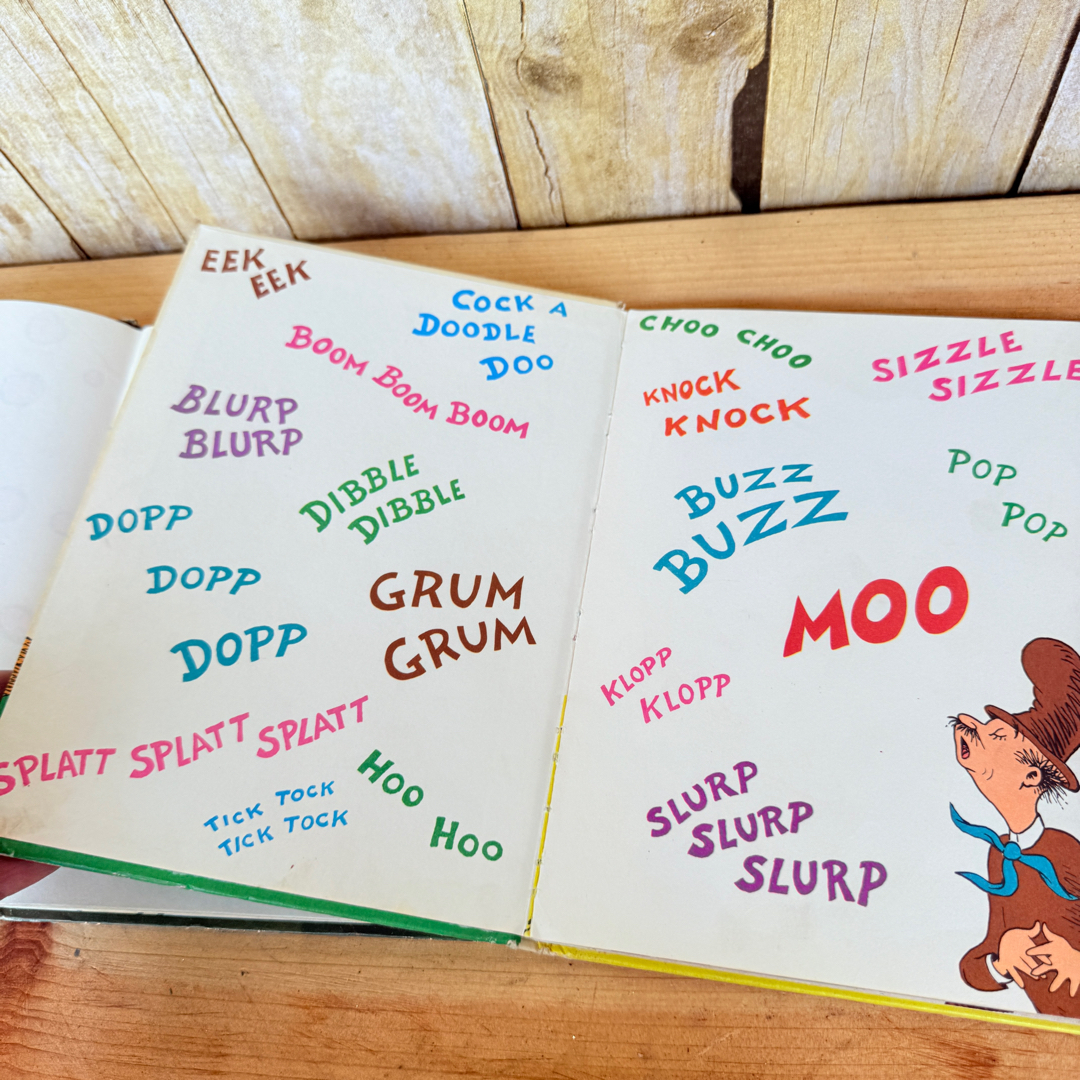 EEK
EEK
COCK A
DOODLE
DOO
BOOM BOOM BOOM BOOM
BLURP
BLURP
DIBBLE
DIBBLE
DOPP
DOPP
DOPP
GRUM
GRUM
SPLATT SPLATT SPLATT
TICK TOCK
TICK TOCK
HOO
HOO
CHOO CHOO
SIZZLE
SIZZLE
KNOCK
KNOCK
POP
POP
BUZZ
BUZZ
MOO
KLOPP
KLOPP
SLURP
SLURP
SLURP